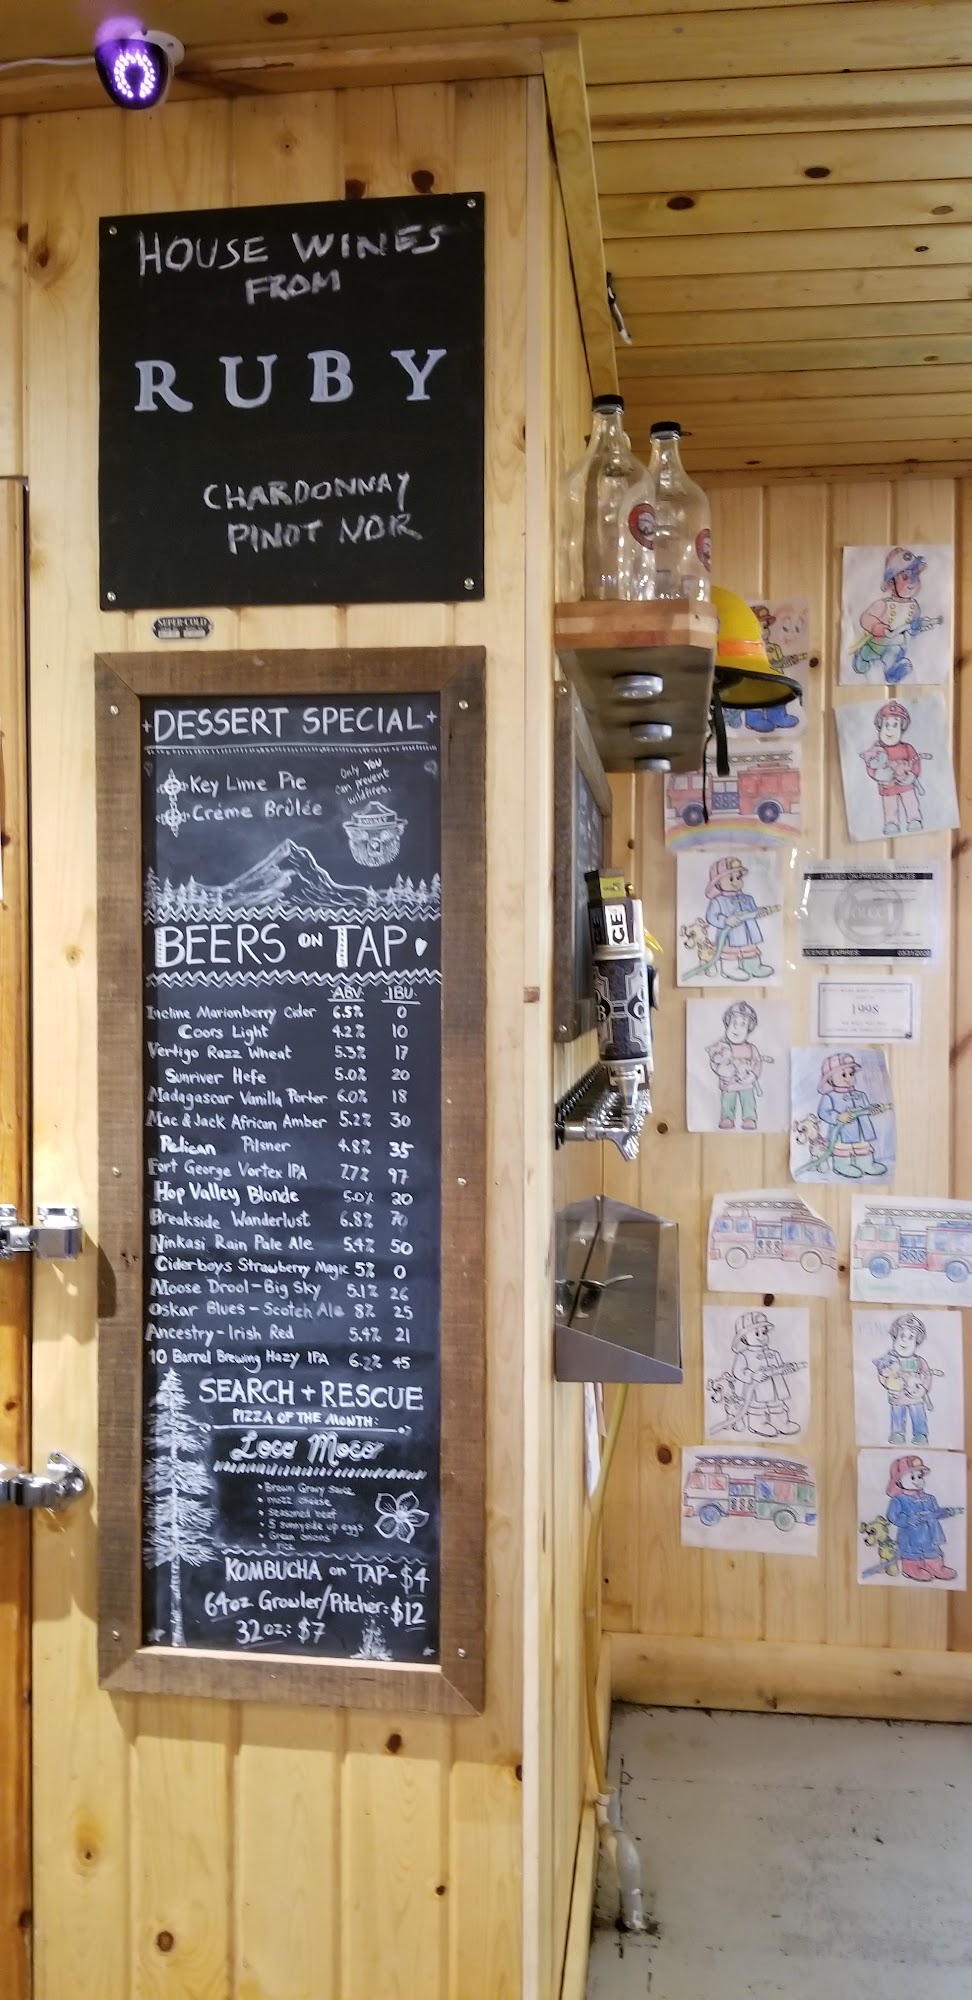 HOUSE WINES
FROM
RUBY
CHARDONNAY
PINOT NOIR
SUPER-COLD
+DESSERT SPECIAL+
Key Lime Pie
Créme Brûlée
Only YOU
can prevent
wildfires.
SMOKEY
BEERS ON TAP
ABV IBU
Incline Marionberry Cider 6.5% 0
Coors Light 4.2% 10
Vertigo Razz Wheat 5.3% 17
Sunriver Hefe 5.0% 20
Madagascar Vanilla Porter 6.0% 18
Mac & Jack African Amber 5.2% 30
Pelican Pilsner 4.8% 35
Fort George Vortex IPA 7.7% 97
Hop Valley Blonde 5.0% 20
Breakside Wanderlust 6.8% 70
Ninkasi Rain Pale Ale 5.4% 50
Ciderboys Strawberry Magic 5% 0
Moose Drool - Big Sky 5.1% 26
Oskar Blues - Scotch Ale 8% 25
Ancestry - Irish Red 5.4% 21
10 Barrel Brewing Hazy IPA 6.2% 45
SEARCH + RESCUE
PIZZA OF THE MONTH:
Loco Moco
• Brown Gravy sauce
• mozz cheese
• seasoned beef
• 5 sunnyside up eggs
• Green onions
• rice
KOMBUCHA on TAP - $4
64oz Growler/Pitcher: $12
32oz: $7
LIMITED ON-PREMISES SALES
OLCC
LICENSE EXPIRES: 03/31/2020
1998